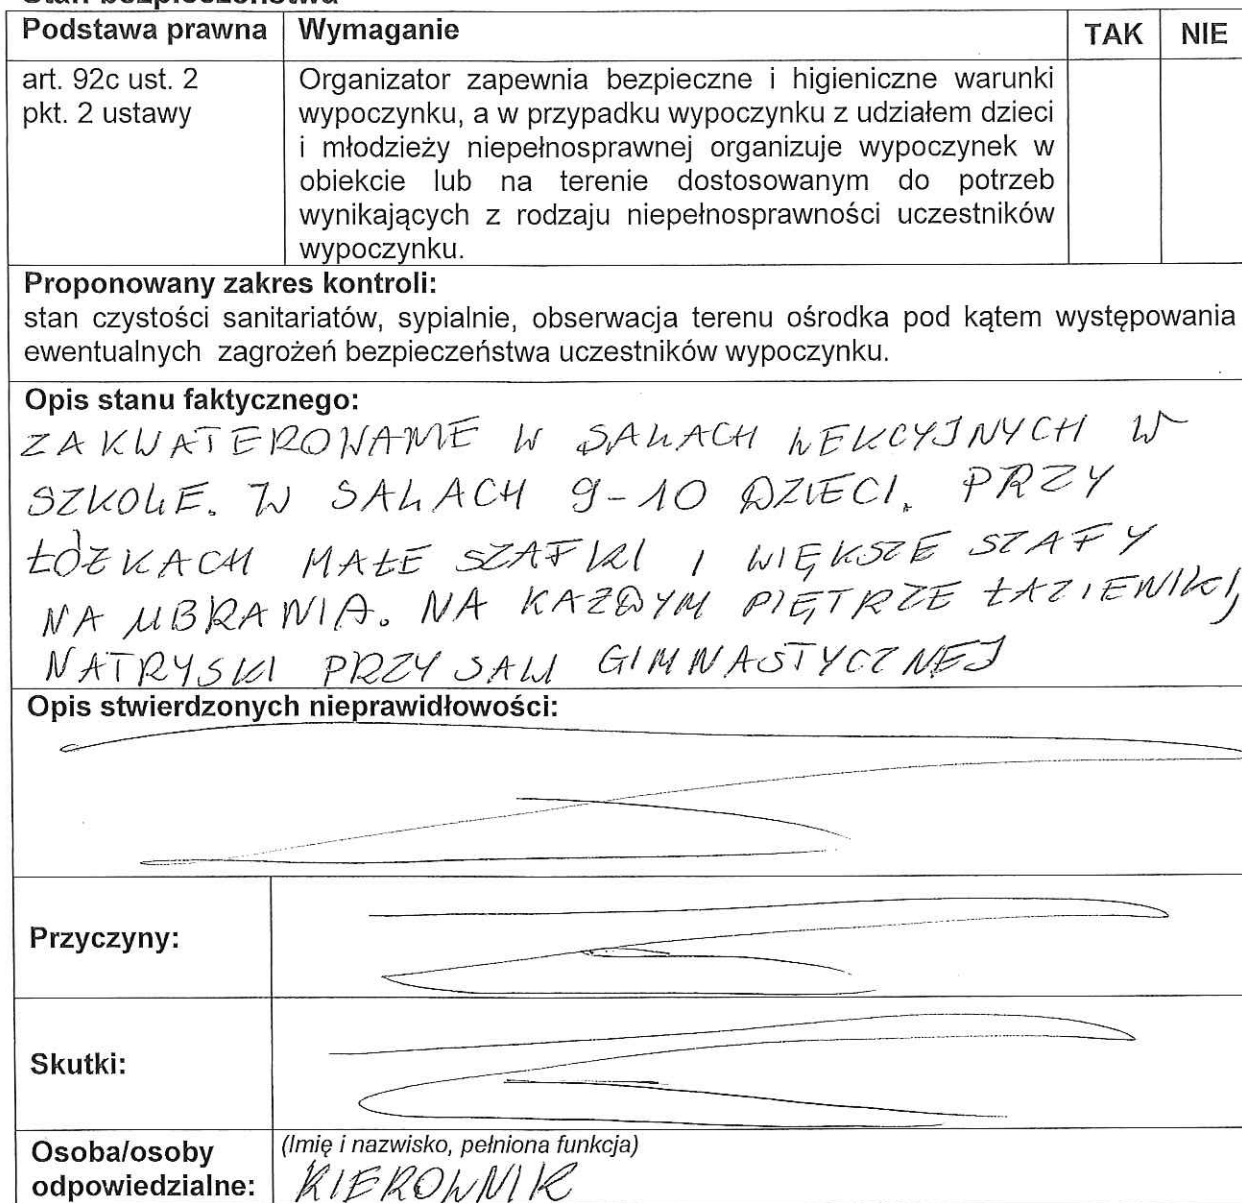 Stan bezpieczeństwa
Podstawa prawna Wymaganie TAK NIE
art. 92c ust. 2
pkt. 2 ustawy
Organizator zapewnia bezpieczne i higieniczne warunki
wypoczynku, a w przypadku wypoczynku z udziałem dzieci
i młodzieży niepełnosprawnej organizuje wypoczynek w
obiekcie lub na terenie dostosowanym do potrzeb
wynikających z rodzaju niepełnosprawności uczestników
wypoczynku.
Proponowany zakres kontroli:
stan czystości sanitariatów, sypialnie, obserwacja terenu ośrodka pod kątem występowania
ewentualnych zagrożeń bezpieczeństwa uczestników wypoczynku.
Opis stanu faktycznego:
ZAKWATEROWANIE W SALACH LEKCYJNYCH W
SZKOLE. W SALACH 9-10 DZIECI. PRZY
ŁÓŻKACH MAŁE SZAFKI I WIĘKSZE SZAFY
NA UBRANIA. NA KAŻDYM PIĘTRZE ŁAZIENKI,
NATRYSKI PRZY SALI GIMNASTYCZNEJ
Opis stwierdzonych nieprawidłowości:
Przyczyny:
Skutki:
Osoba/osoby
odpowiedzialne:
(Imię i nazwisko, pełniona funkcja)
KIEROWNIK